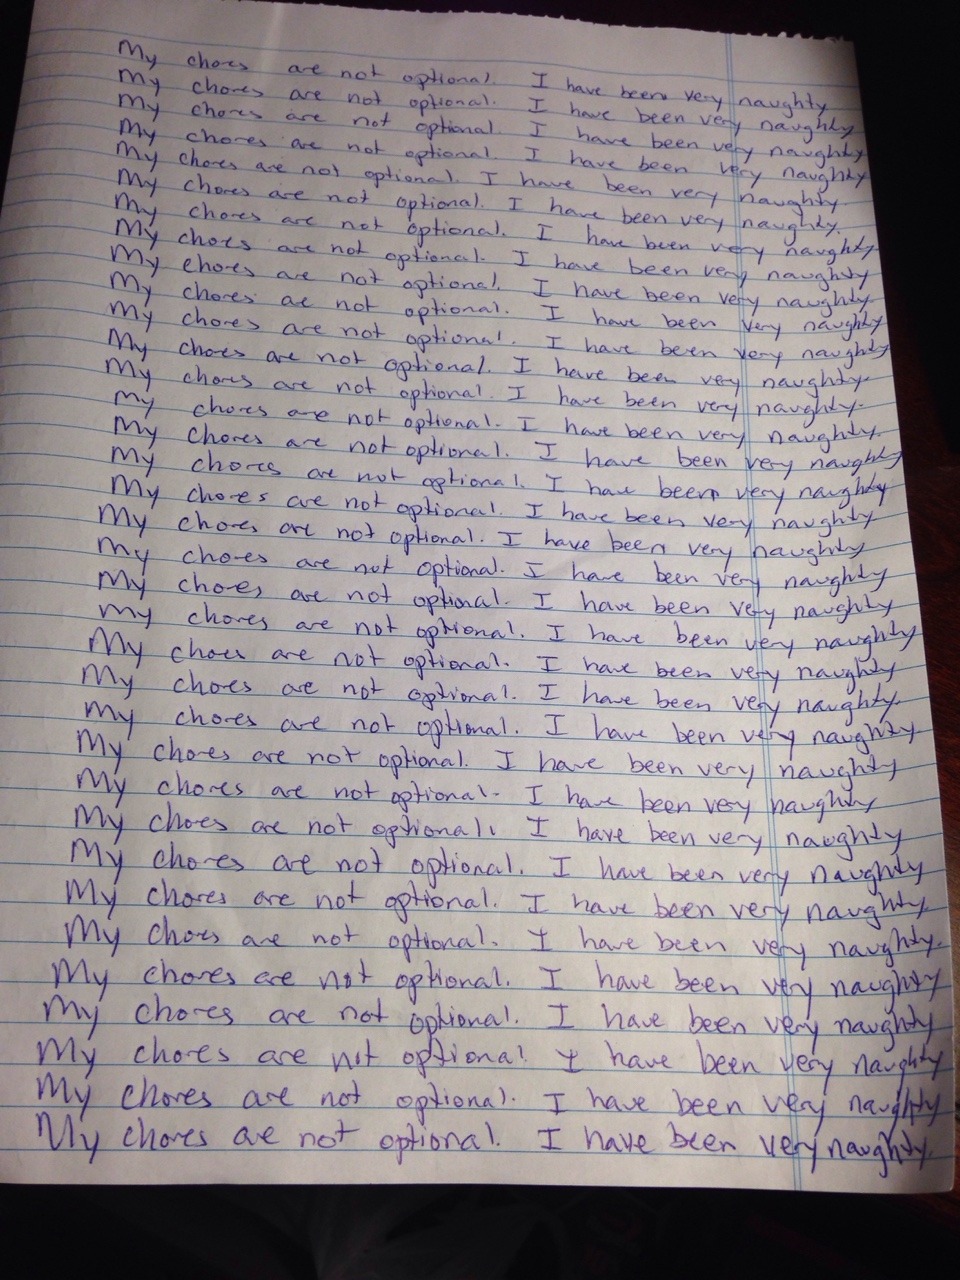 My chores are not optional. I have been very naughty
My chores are not optional. I have been very naughty
My chores are not optional. I have been very naughty
My chores are not optional. I have been very naughty
My chores are not optional. I have been very naughty.
My chores are not optional. I have been very naughty.
My chores are not optional. I have been very naughty
My chores are not optional. I have been very naughty
My chores are not optional. I have been very naughty
My chores are not optional. I have been very naughty
My chores are not optional. I have been very naughty
My chores are not optional. I have been very naughty.
My chores are not optional. I have been very naughty.
My chores are not optional. I have been very naughty.
My chores are not optional. I have been very naughty
My chores are not optional. I have been very naughty
My chores are not optional. I have been very naughty
My chores are not optional. I have been very naughty
My chores are not optional. I have been very naughty
My chores are not optional. I have been very naughty
My chores are not optional. I have been very naughty
My chores are not optional. I have been very naughty
My chores are not optional. I have been very naughty.
My chores are not optional. I have been very naughty
My chores are not optional. I have been very naughty
My chores are not optional. I have been very naughty
My chores are not optional. I have been very naughty
My chores are not optional. I have been very naughty
My chores are not optional. I have been very naughty.
My chores are not optional. I have been very naughty.
My chores are not optional. I have been very naughty
My chores are not optional. I have been very naughty
My chores are not optional. I have been very naughty
My chores are not optional. I have been very naughty
My chores are not optional. I have been very naughty.